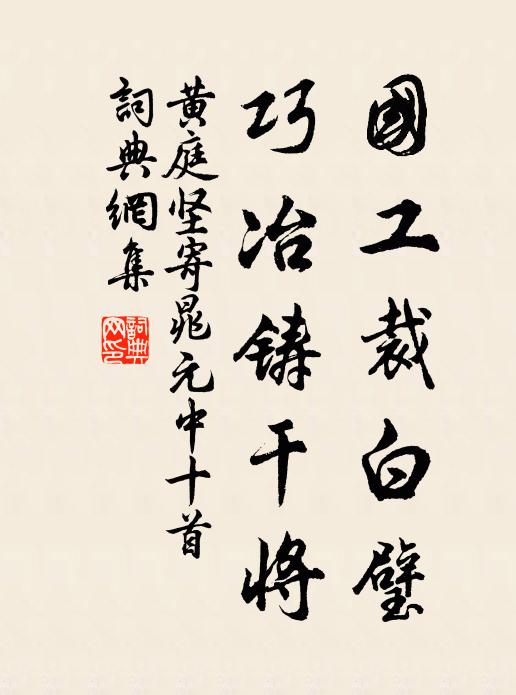 國工裁白璧
巧冶鑄干將
黄庭坚寄晁元中十首
詞典網集
詞典
网印